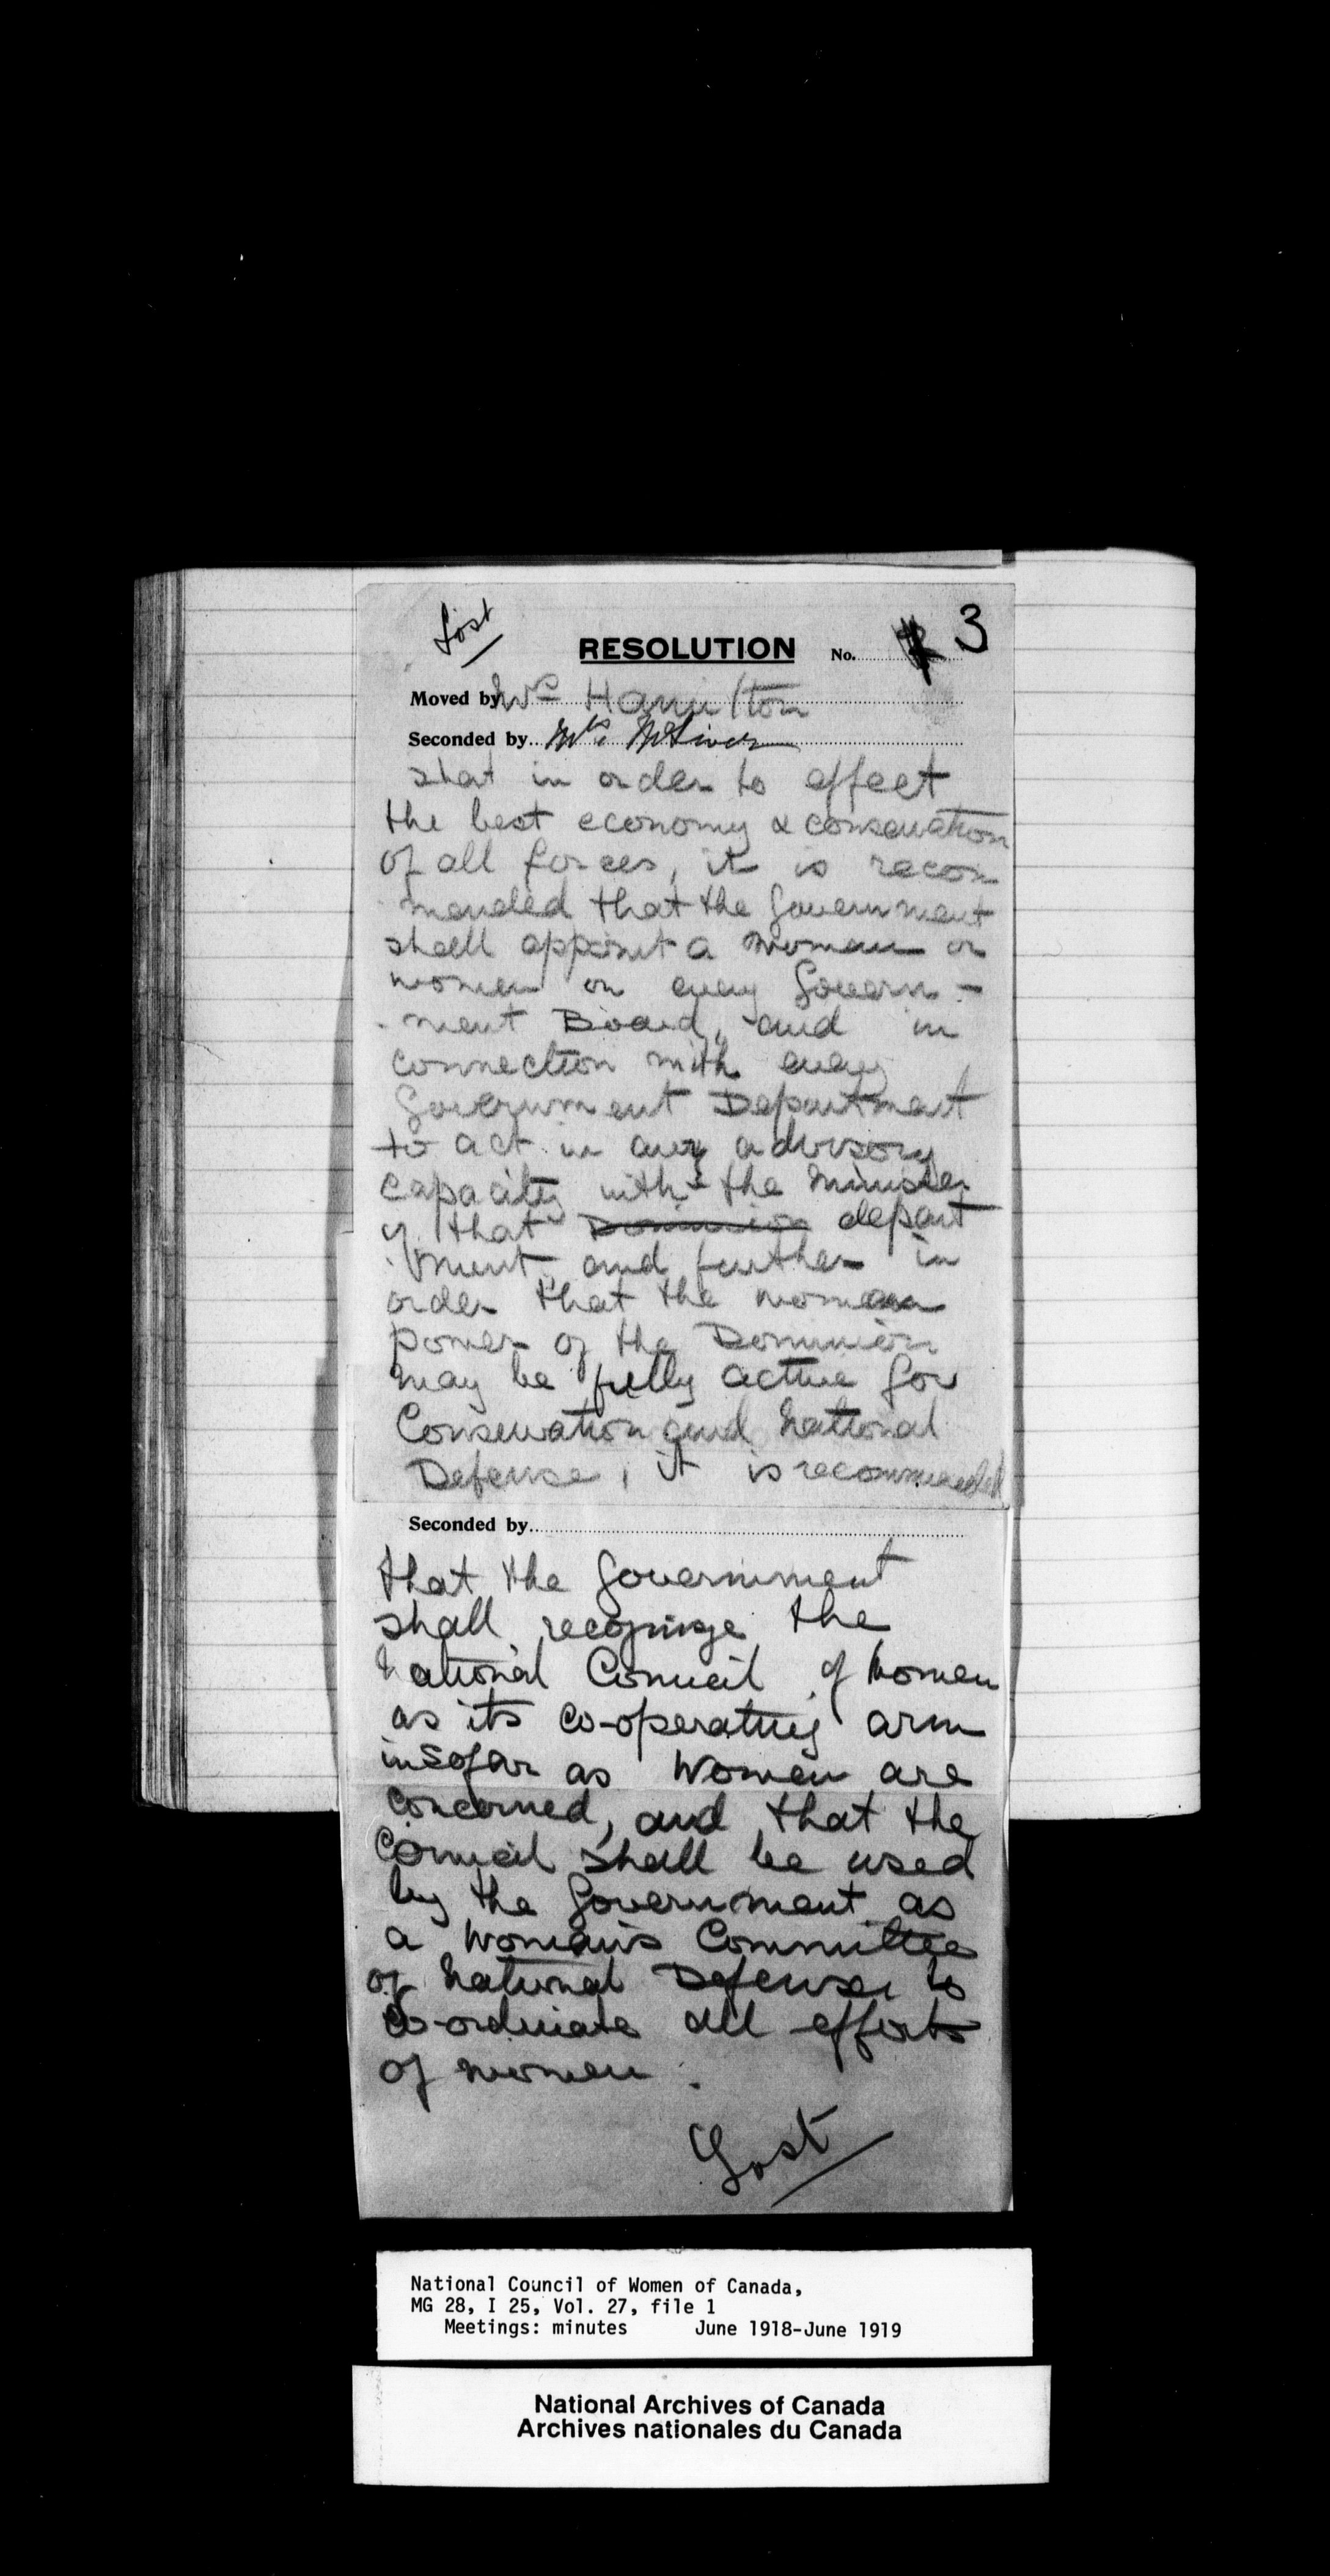 Lost
RESOLUTION No. 3
Moved by Mrs Hamilton
Seconded by Mrs.
that in order to effect
the best economy & conservation
of all forces, it is recom
mended that the Government
shall appoint a woman or
women on every Govern-
ment Board, and in
connection with every
Government Department
to act in any advisory
capacity with the Minister
of that Dominion depart
ment, and further in
order that the woman
power of the Dominion
may be fully active for
Conservation and National
Defense, it is recommended
Seconded by
that the Government
shall recognize the
National Council of Women
as its co-operating arm
insofar as Women are
concerned, and that the
Council shall be used
by the Government as
a Woman's Committee
of National Defense, to
co-ordinate all efforts
of women.
Lost
National Council of Women of Canada,
MG 28, I 25, Vol. 27, file 1
Meetings: minutes June 1918-June 1919
National Archives of Canada
Archives nationales du Canada